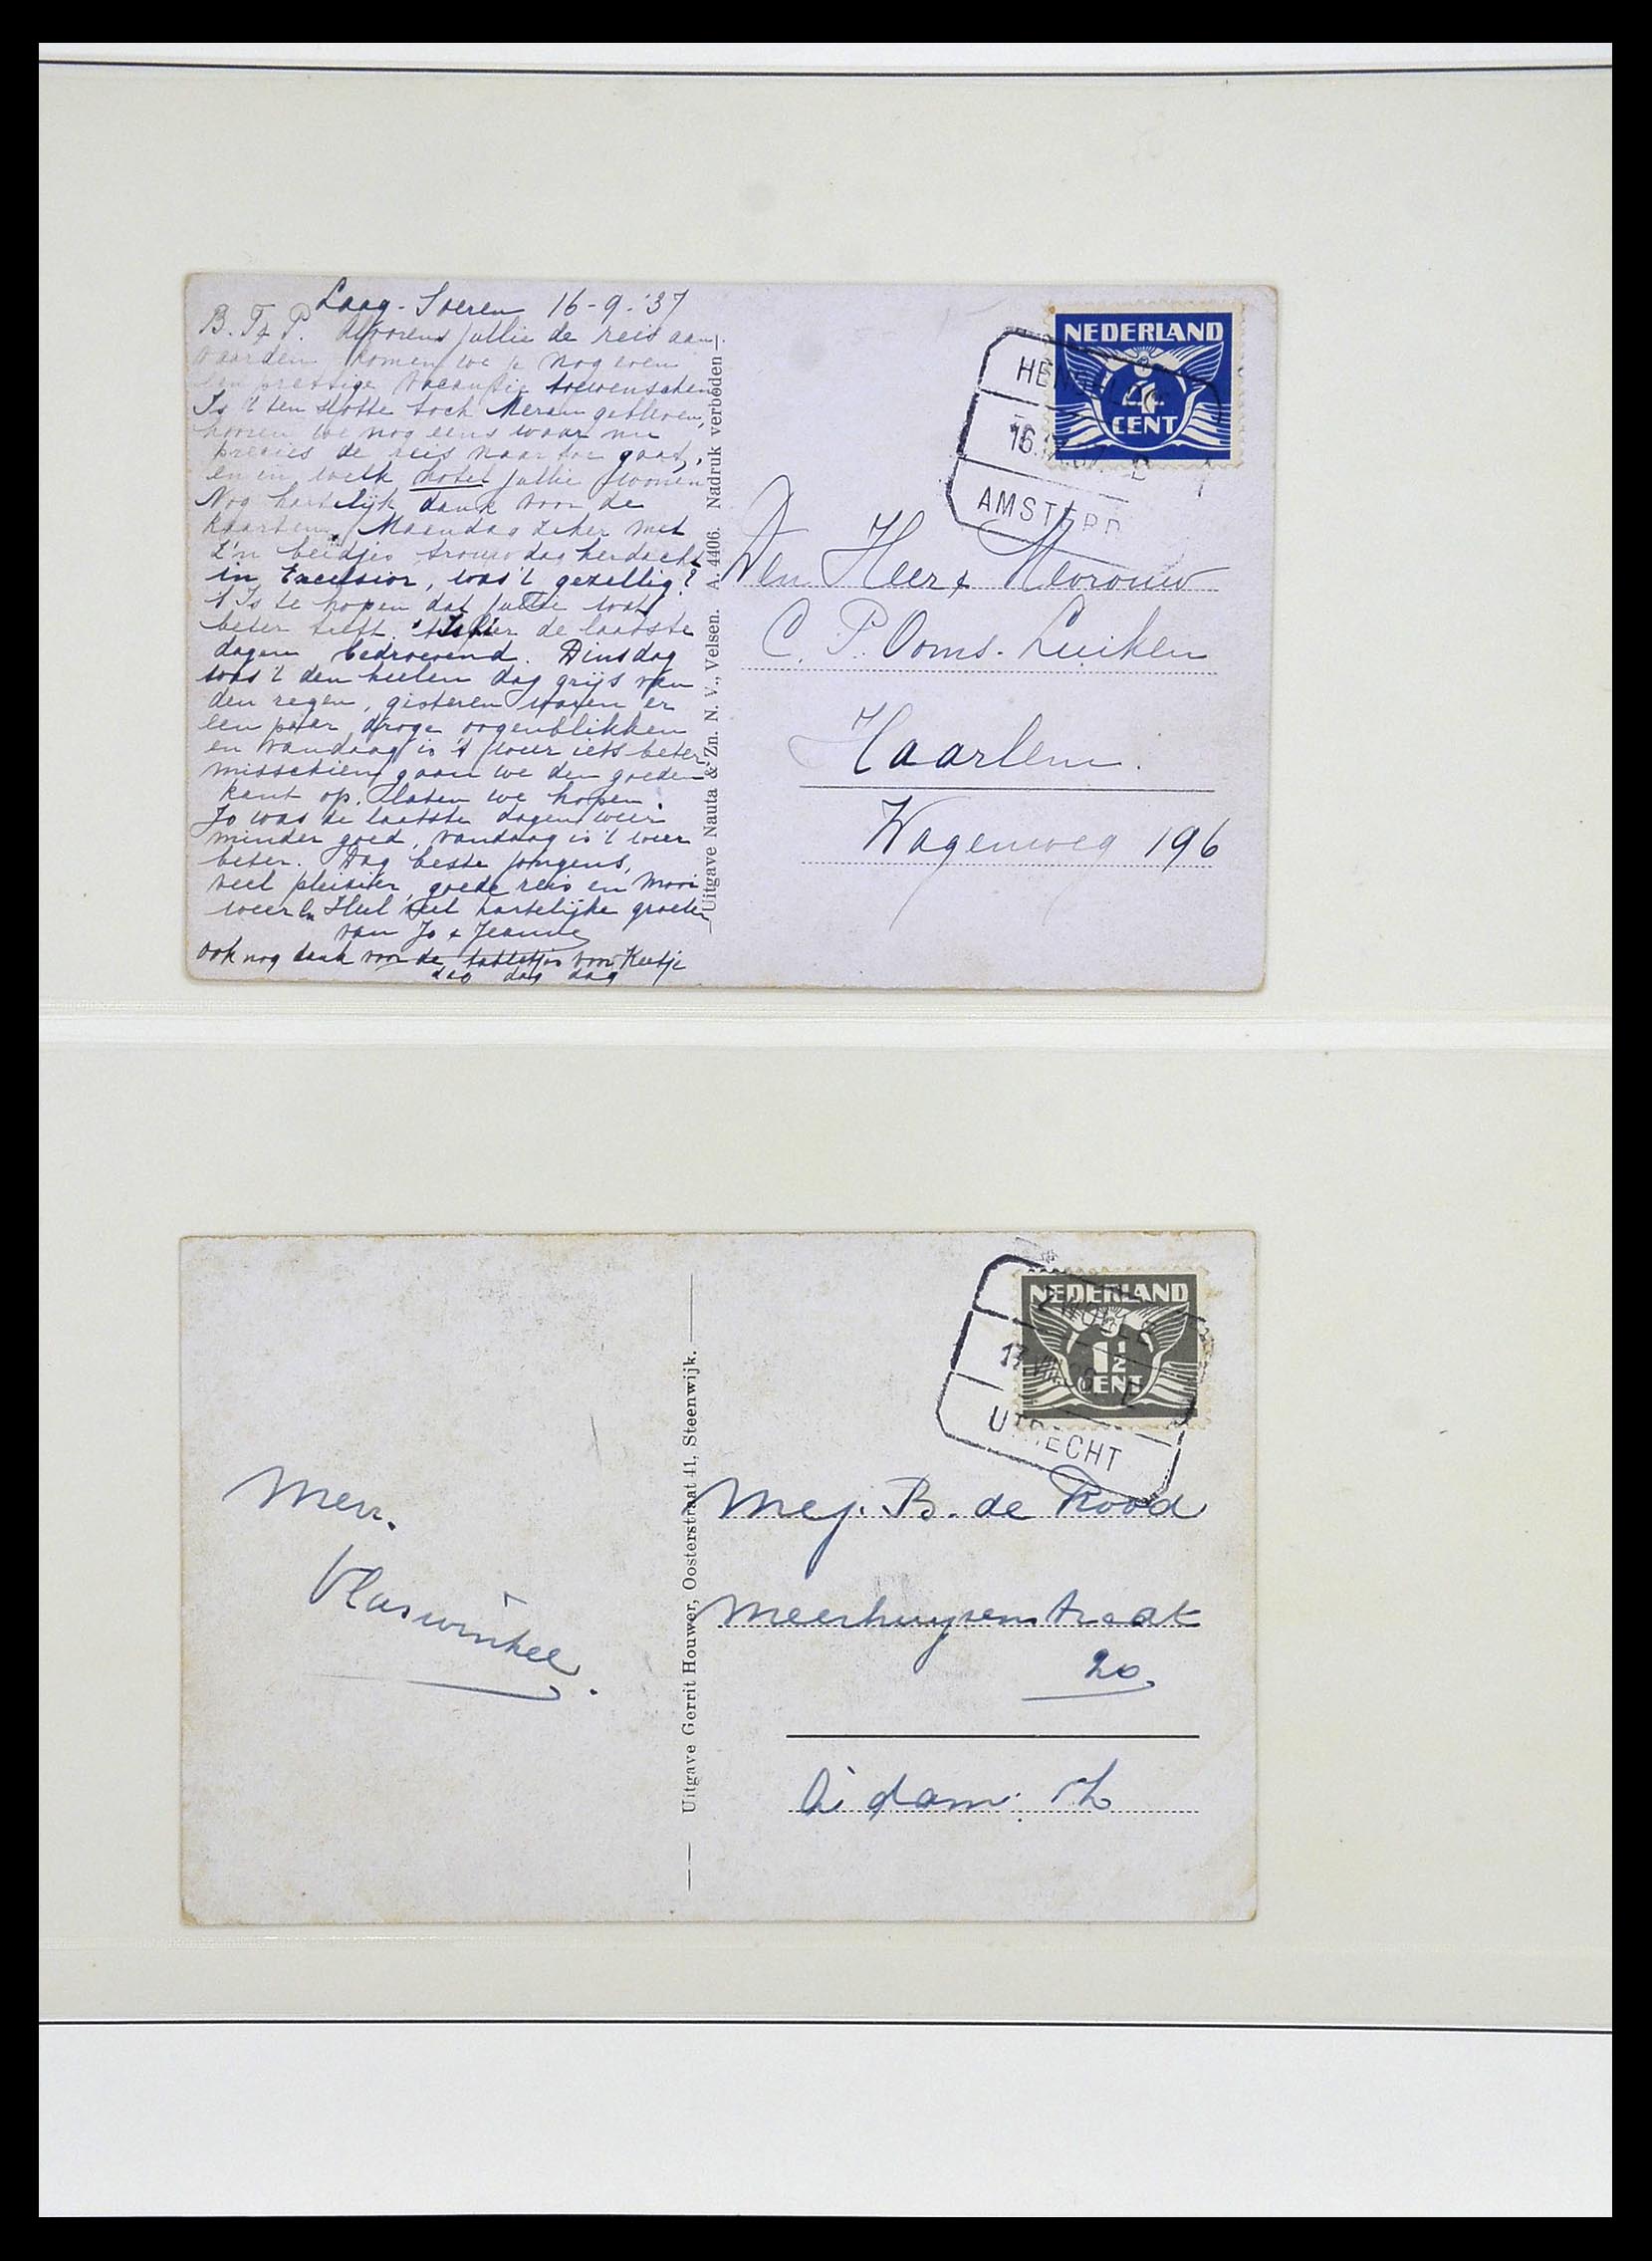 Laag-Soeren 16-9-'37
B. T. & P. Alvorens jullie de reis aan-
vaarden komen we je nog even
een prettige vacantie toewenschen
Is 't ten slotte toch Meran gebleven,
hooren we nog eens waar nu
precies de reis naar toe gaat,
en in welk hotel jullie wonen
Nog hartelijk dank voor de
kaarten. Maandag zeker met
z'n beidjes trouwdag herdacht
in Excelsior, was 't gezellig?
't Is te hopen dat jullie wat
beter treft. 't Is hier de laatste
dagen bedroevend. Dinsdag
was 't den heelen dag grijs van
den regen, gisteren waren er
een paar droge oogenblikken
en vandaag is 't weer iets beter
misschien gaan we den goeden
kant op. Laten we hopen.
Jo was de laatste dagen weer
minder goed, vandaag is 't weer
beter. Dag beste jongens,
veel pleizier, goede reis en mooi
weer en Heel veel hartelijke groeten
van Jo & Jeanne
ook nog dank voor de tabletjes voor Keetje
dag dag dag
Uitgave Nauta & Zn. N. V., Velsen. A. 4406. Nadruk verboden
NEDERLAND
4
CENT
16
AMSTERD
Den Heer & Mevrouw
C. P. Ooms-Luiken
Haarlem.
Wagenweg 196
Uitgave Gerrit Houwer, Oosterstraat 41, Steenwijk.
NEDERLAND
1½
CENT
ZWOLLE
UTRECHT
Mevr.
Vlaswinkel.
Mej. B. de Rood
Meerhuyzenstraat
20.
A'dam. Z